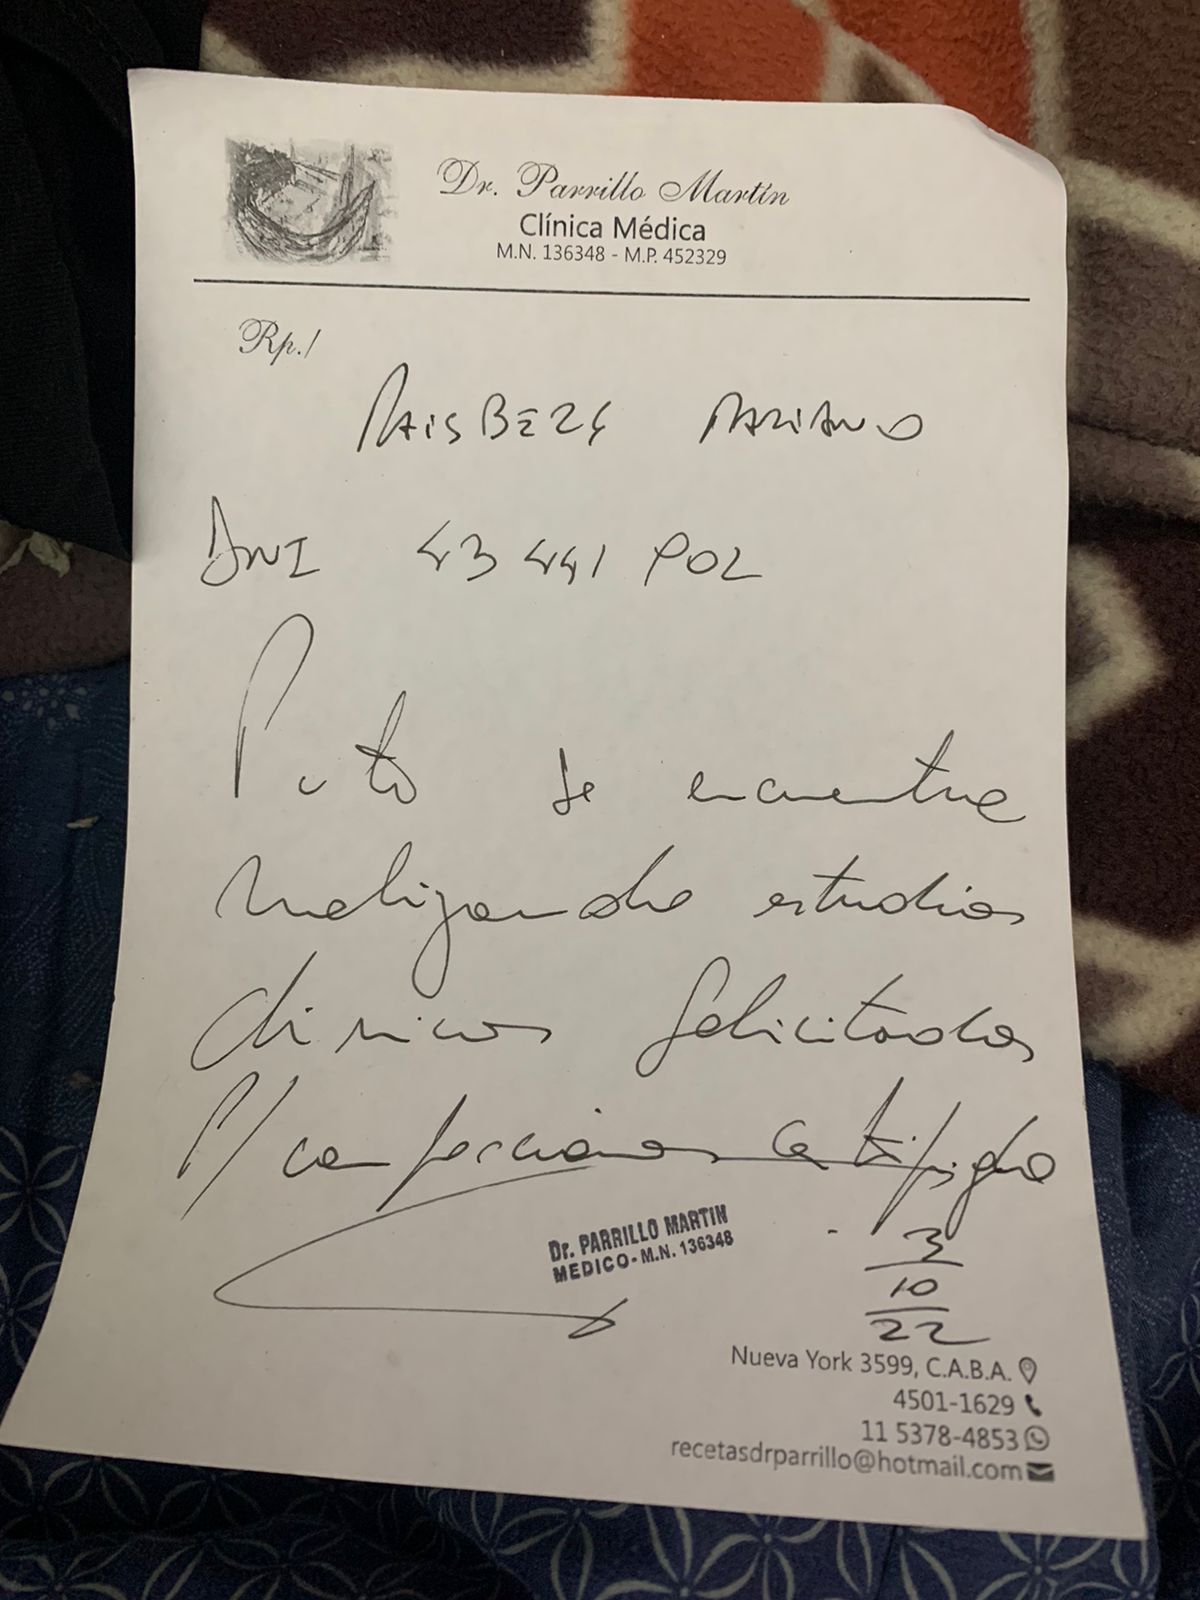 Dr. Parrillo Martín
Clínica Médica
M.N. 136348 - M.P. 452329
Rp./
MAISBERG MARIANO
DNI 43 441 902
Pcto se encuentra
realizando estudios
clinicos solicitados
P/ confeccionar certificado
Dr. PARRILLO MARTIN
MEDICO - M.N. 136348
3
10
22
Nueva York 3599, C.A.B.A.
4501-1629
11 5378-4853
recetasdrparrillo@hotmail.com